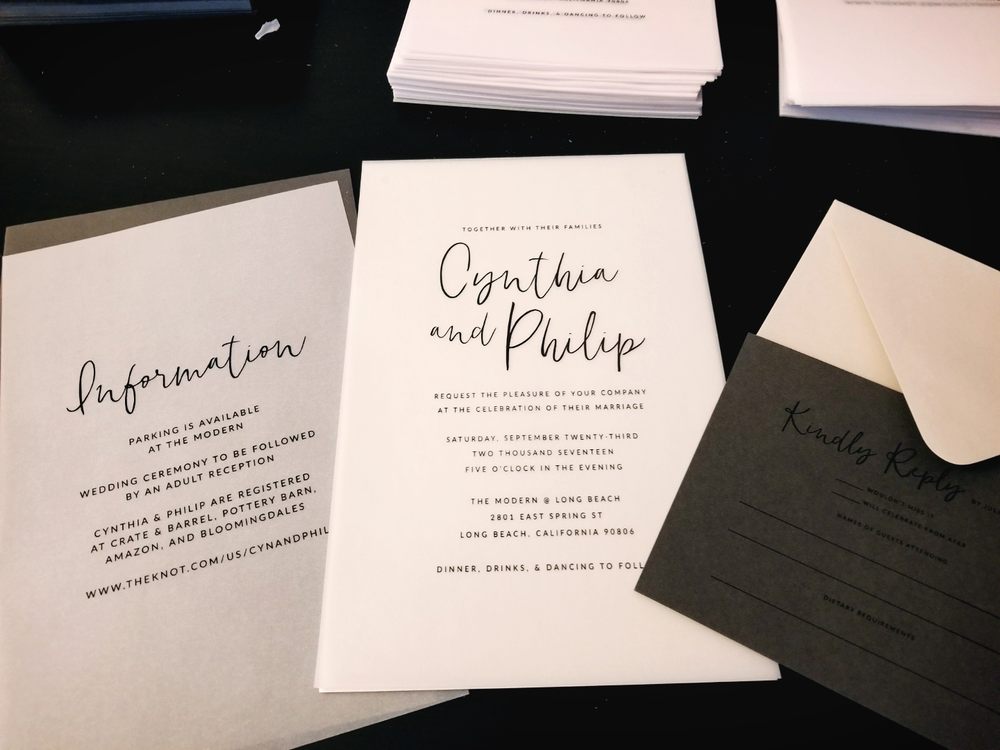 DINNER, DRINKS, & DANCING TO FOLLOW
Information
PARKING IS AVAILABLE
AT THE MODERN
WEDDING CEREMONY TO BE FOLLOWED
BY AN ADULT RECEPTION
CYNTHIA & PHILIP ARE REGISTERED
AT CRATE & BARREL, POTTERY BARN,
AMAZON, AND BLOOMINGDALES
WWW.THEKNOT.COM/US/CYNANDPHIL
TOGETHER WITH THEIR FAMILIES
Cynthia
and Philip
REQUEST THE PLEASURE OF YOUR COMPANY
AT THE CELEBRATION OF THEIR MARRIAGE
SATURDAY, SEPTEMBER TWENTY-THIRD
TWO THOUSAND SEVENTEEN
FIVE O'CLOCK IN THE EVENING
THE MODERN @ LONG BEACH
2801 EAST SPRING ST
LONG BEACH, CALIFORNIA 90806
DINNER, DRINKS, & DANCING TO FOLL
Kindly Reply
BY
WOULDN'T MISS IT
WILL CELEBRATE FROM AFAR
NAMES OF GUESTS ATTENDING
DIETARY REQUIREMENTS